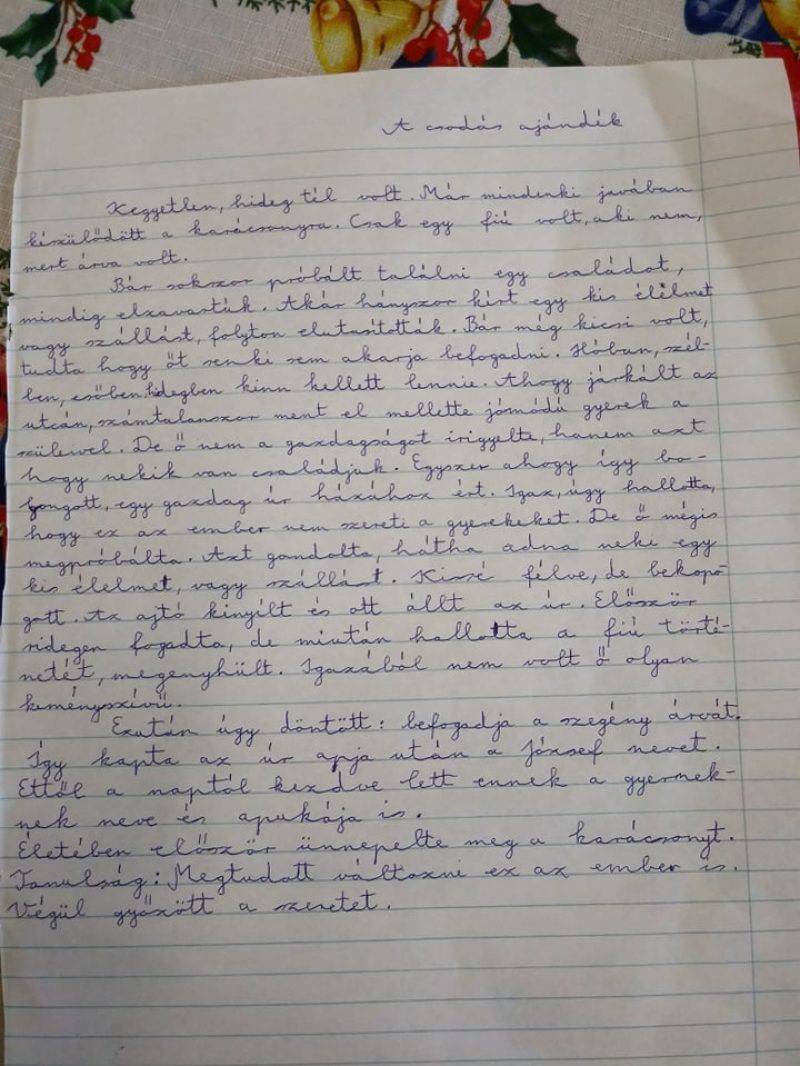 A csodás ajándék
Kegyetlen, hideg tél volt. Már mindenki javában
készülődött a karácsonyra. Csak egy fiú volt, aki nem,
mert árva volt.
Bár sokszor próbált találni egy családot,
mindig elzavarták. Akár hányszor kért egy kis élelmet
vagy szállást, folyton elutasították. Bár még kicsi volt,
tudta hogy őt senki sem akarja befogadni. Hóban, szél-
ben, esőben, hidegben kinn kellett lennie. Ahogy járkált az
utcán, számtalanszor ment el mellette jómódú gyerek a
szüleivel. De ő nem a gazdagságot irigyelte, hanem azt
hogy nekik van családjuk. Egyszer ahogy így bo-
longott, egy gazdag úr házához ért. Igaz, úgy hallotta,
hogy ez az ember nem szereti a gyerekeket. De ő mégis
megpróbálta. Azt gondolta, hátha adna neki egy
kis élelmet, vagy szállást. Kissé félve, de bekopo-
gott. Az ajtó kinyílt és ott állt az úr. Először
ridegen fogadta, de miután hallotta a fiú törté-
netét, megenyhült. Igazából nem volt ő olyan
keményszívű.
Ezután úgy döntött: befogadja a szegény árvát.
Így kapta az úr apja után a József nevet.
Ettől a naptól kezdve lett ennek a gyermek-
nek neve és apukája is.
Életében először ünnepelte meg a karácsonyt.
Tanulság: Megtudott változni ez az ember is.
Végül győzött a szeretet.